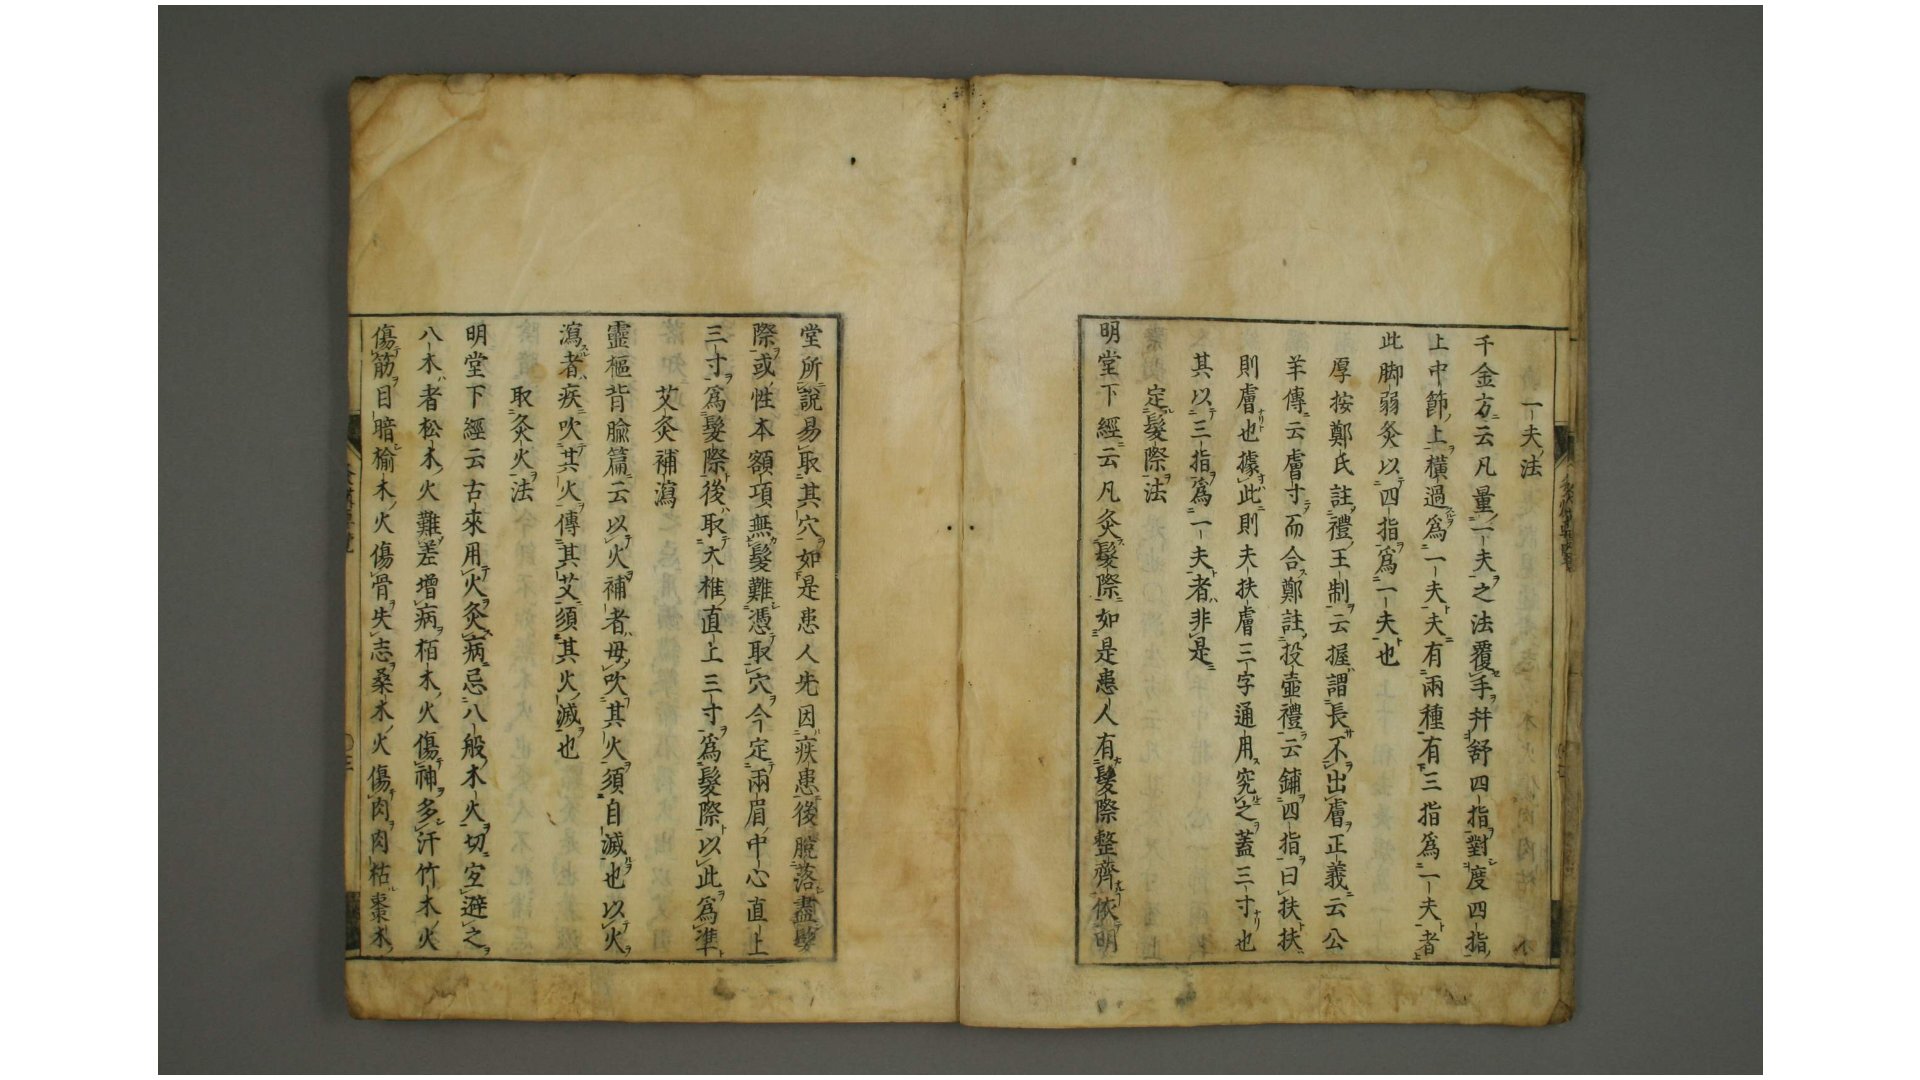 一夫法
千金方云凡量一夫之法覆手幷舒四指對度四指
上中節上横過爲一夫夫有兩種有三指爲一夫者
此脚弱灸以四指爲一夫也
厚按鄭氏註禮王制云握謂長不出膚正義云公
羊傳云膚寸而合鄭註投壺禮云鋪四指曰扶扶
則膚也據此則夫扶膚三字通用究之蓋三寸也
其以三指爲一夫者非是
定髮際法
明堂下經云凡灸髮際如是患人有髮際整齊依明
堂所說易取其穴如是患人先因疾患後脫落盡髮
際或性本額項無髮難憑取穴今定兩眉中心直上
三寸爲髮際後取大椎直上三寸爲髮際以此爲準
艾灸補瀉
靈樞背腧篇云以火補者毋吹其火須自滅也以火
瀉者疾吹其火傳其艾須其火滅也
取灸火法
明堂下經云古來用火灸病忌八般木火切宜避之
八木者松木火難差增病栢木火傷神多汗竹木火
傷筋目暗榆木火傷骨失志桑木火傷肉肉枯棗木